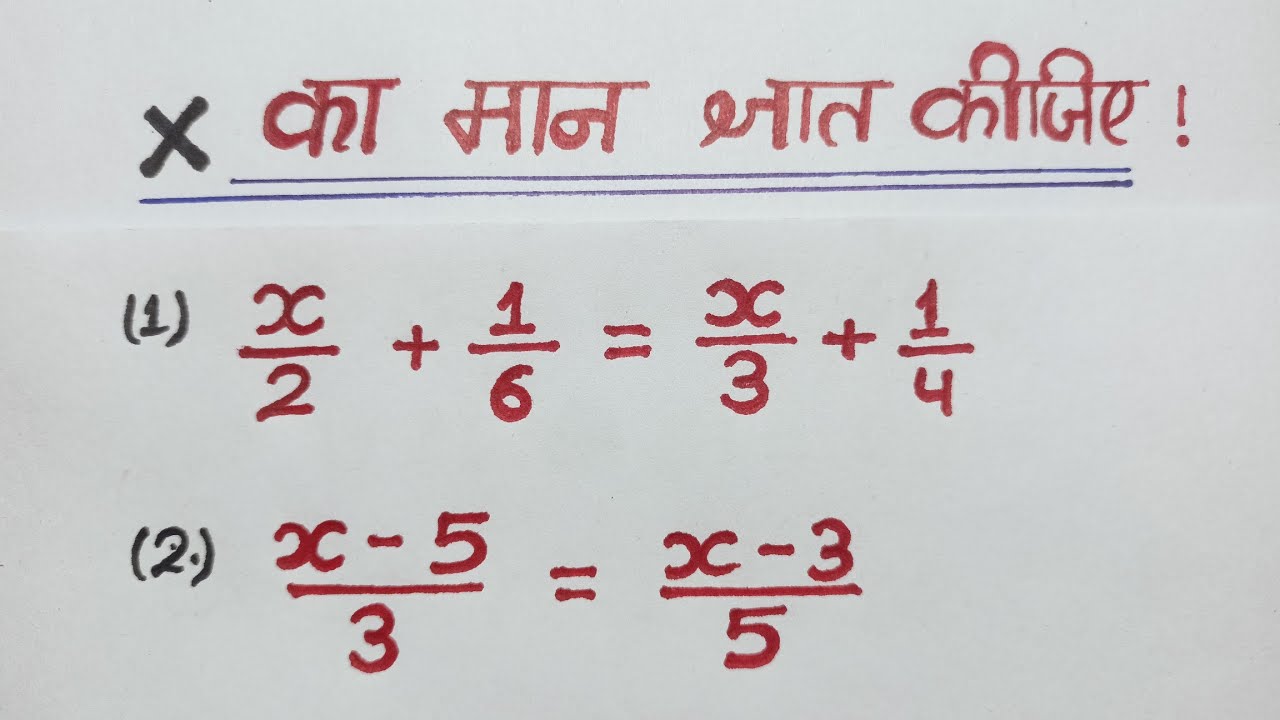 x का मान ज्ञात कीजिए !
(1) x/2 + 1/6 = x/3 + 1/4
(2.) x - 5/3 = x - 3/5